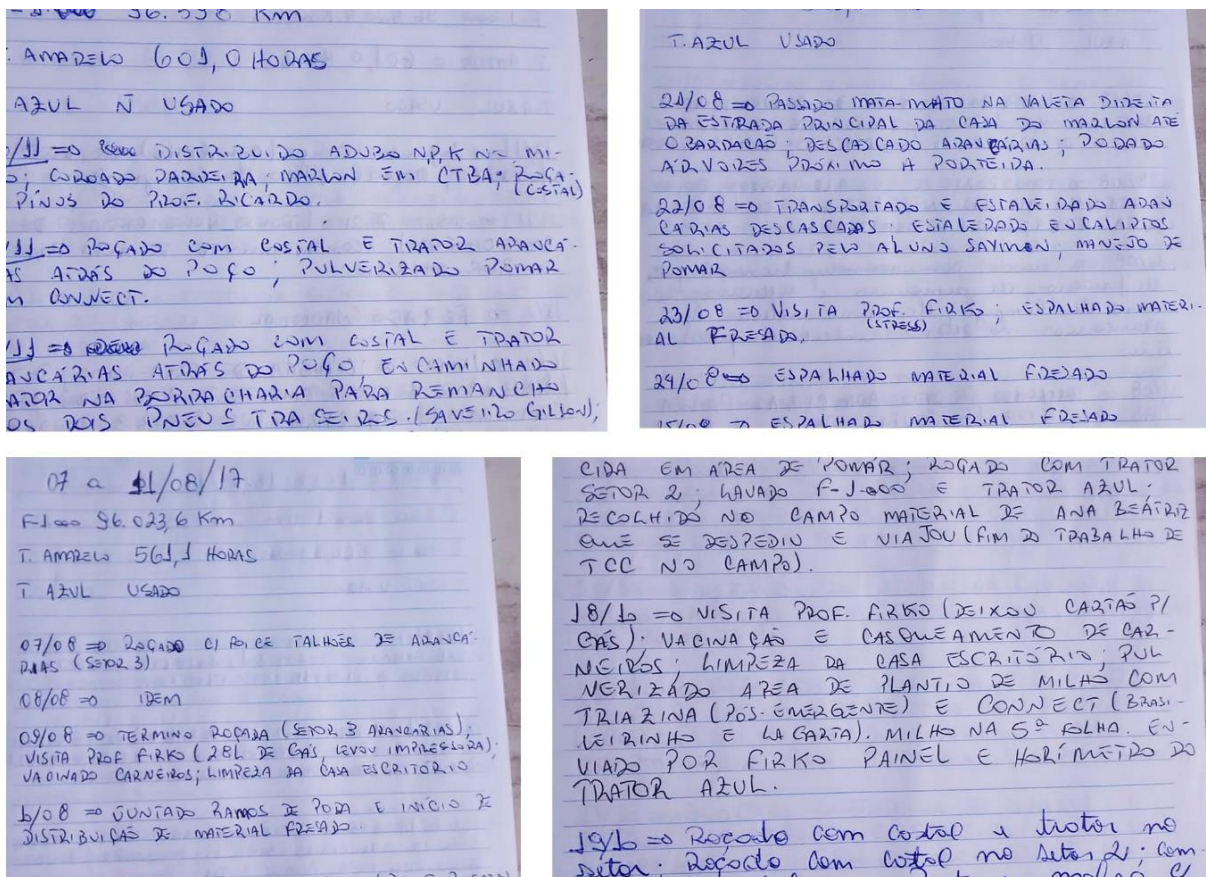 96.596 Km
T. AMARELO 601,0 HORAS
AZUL Ñ USADO
/11 =D DISTRIBUIDO ADUBO N,P,K NO MI-
O; COROADO PARREIRA; MARLON EM CTBA; ROÇA-
(COSTAL)
PÍNUS DO PROF. RICARDO.
/11 =D ROÇADO COM COSTAL E TRATOR ARAUCÁ-
AS ATRÁS DO POÇO; PULVERIZADO POMAR
M CONNECT.
/11 =D ROÇADO COM COSTAL E TRATOR
AUCÁRIAS ATRÁS DO POÇO; ENCAMINHADO
ATOR NA BORRACHARIA PARA REMANCHO
OS DOIS PNEUS TRASEIROS. (SAVEIRO GILSON);
T. AZUL USADO
21/08 =D PASSADO MATA-MATO NA VALETA DIREITA
DA ESTRADA PRINCIPAL DA CASA DO MARLON ATÉ
O BARRACÃO; DESCASCADO ARAUCÁRIAS; PODADO
ÁRVORES PRÓXIMO A PORTEIRA.
22/08 =D TRANSPORTADO E ESTALEIRADO ARAU
CÁRIAS DESCASCADAS; ESTALERADO EUCALIPTOS
SOLICITADOS PELO ALUNO SAYMON; MANEJO DE
POMAR
23/08 =D VISITA PROF. FIRKO; ESPALHADO MATERI-
(STRESS)
AL FRESADO.
24/08 =D ESPALHADO MATERIAL FRESADO
ESPALHADO MATERIAL FRESADO
07 a 11/08/17
F-1000 96.023,6 Km
T. AMARELO 561,1 HORAS
T. AZUL USADO
07/08 =D ROÇADO C/ FOICE TALHÕES DE ARAUCÁ-
RIAS (SETOR 3)
08/08 =D IDEM
09/08 =D TERMINO ROÇADA (SETOR 3 ARAUCARIAS);
VISITA PROF FIRKO (28L DE GÁS, LEVOU IMPRESSORA);
VACINADO CARNEIROS; LIMPEZA DA CASA ESCRITÓRIO
10/08 =D JUNTADO RAMOS DE PODA E INÍCIO DE
DISTRIBUIÇÃO DE MATERIAL FRESADO.
CIDA EM ÁREA DE POMAR; ROÇADO COM TRATOR
SETOR 2; LAVADO F-1.000 E TRATOR AZUL;
RECOLHIDO NO CAMPO MATERIAL DE ANA BEATRIZ
QUE SE DESPEDIU E VIAJOU (FIM DO TRABALHO DE
TCC NO CAMPO).
18/10 =D VISITA PROF. FIRKO (DEIXOU CARTÃO P/
GÁS); VACINAÇÃO E CASQUEAMENTO DE CAR-
NEIROS; LIMPEZA DA CASA ESCRITÓRIO; PUL
VERIZADO AREA DE PLANTIO DE MILHO COM
TRIAZINA (PÓS-EMERGENTE) E CONNECT (BRASI-
LEIRINHO E LAGARTA). MILHO NA 5ª FOLHA. EN-
VIADO POR FIRKO PAINEL E HORÍMETRO DO
TRATOR AZUL.
19/10 =D Roçado com costal e trator no
setor; Roçado com costal no setor 2; com